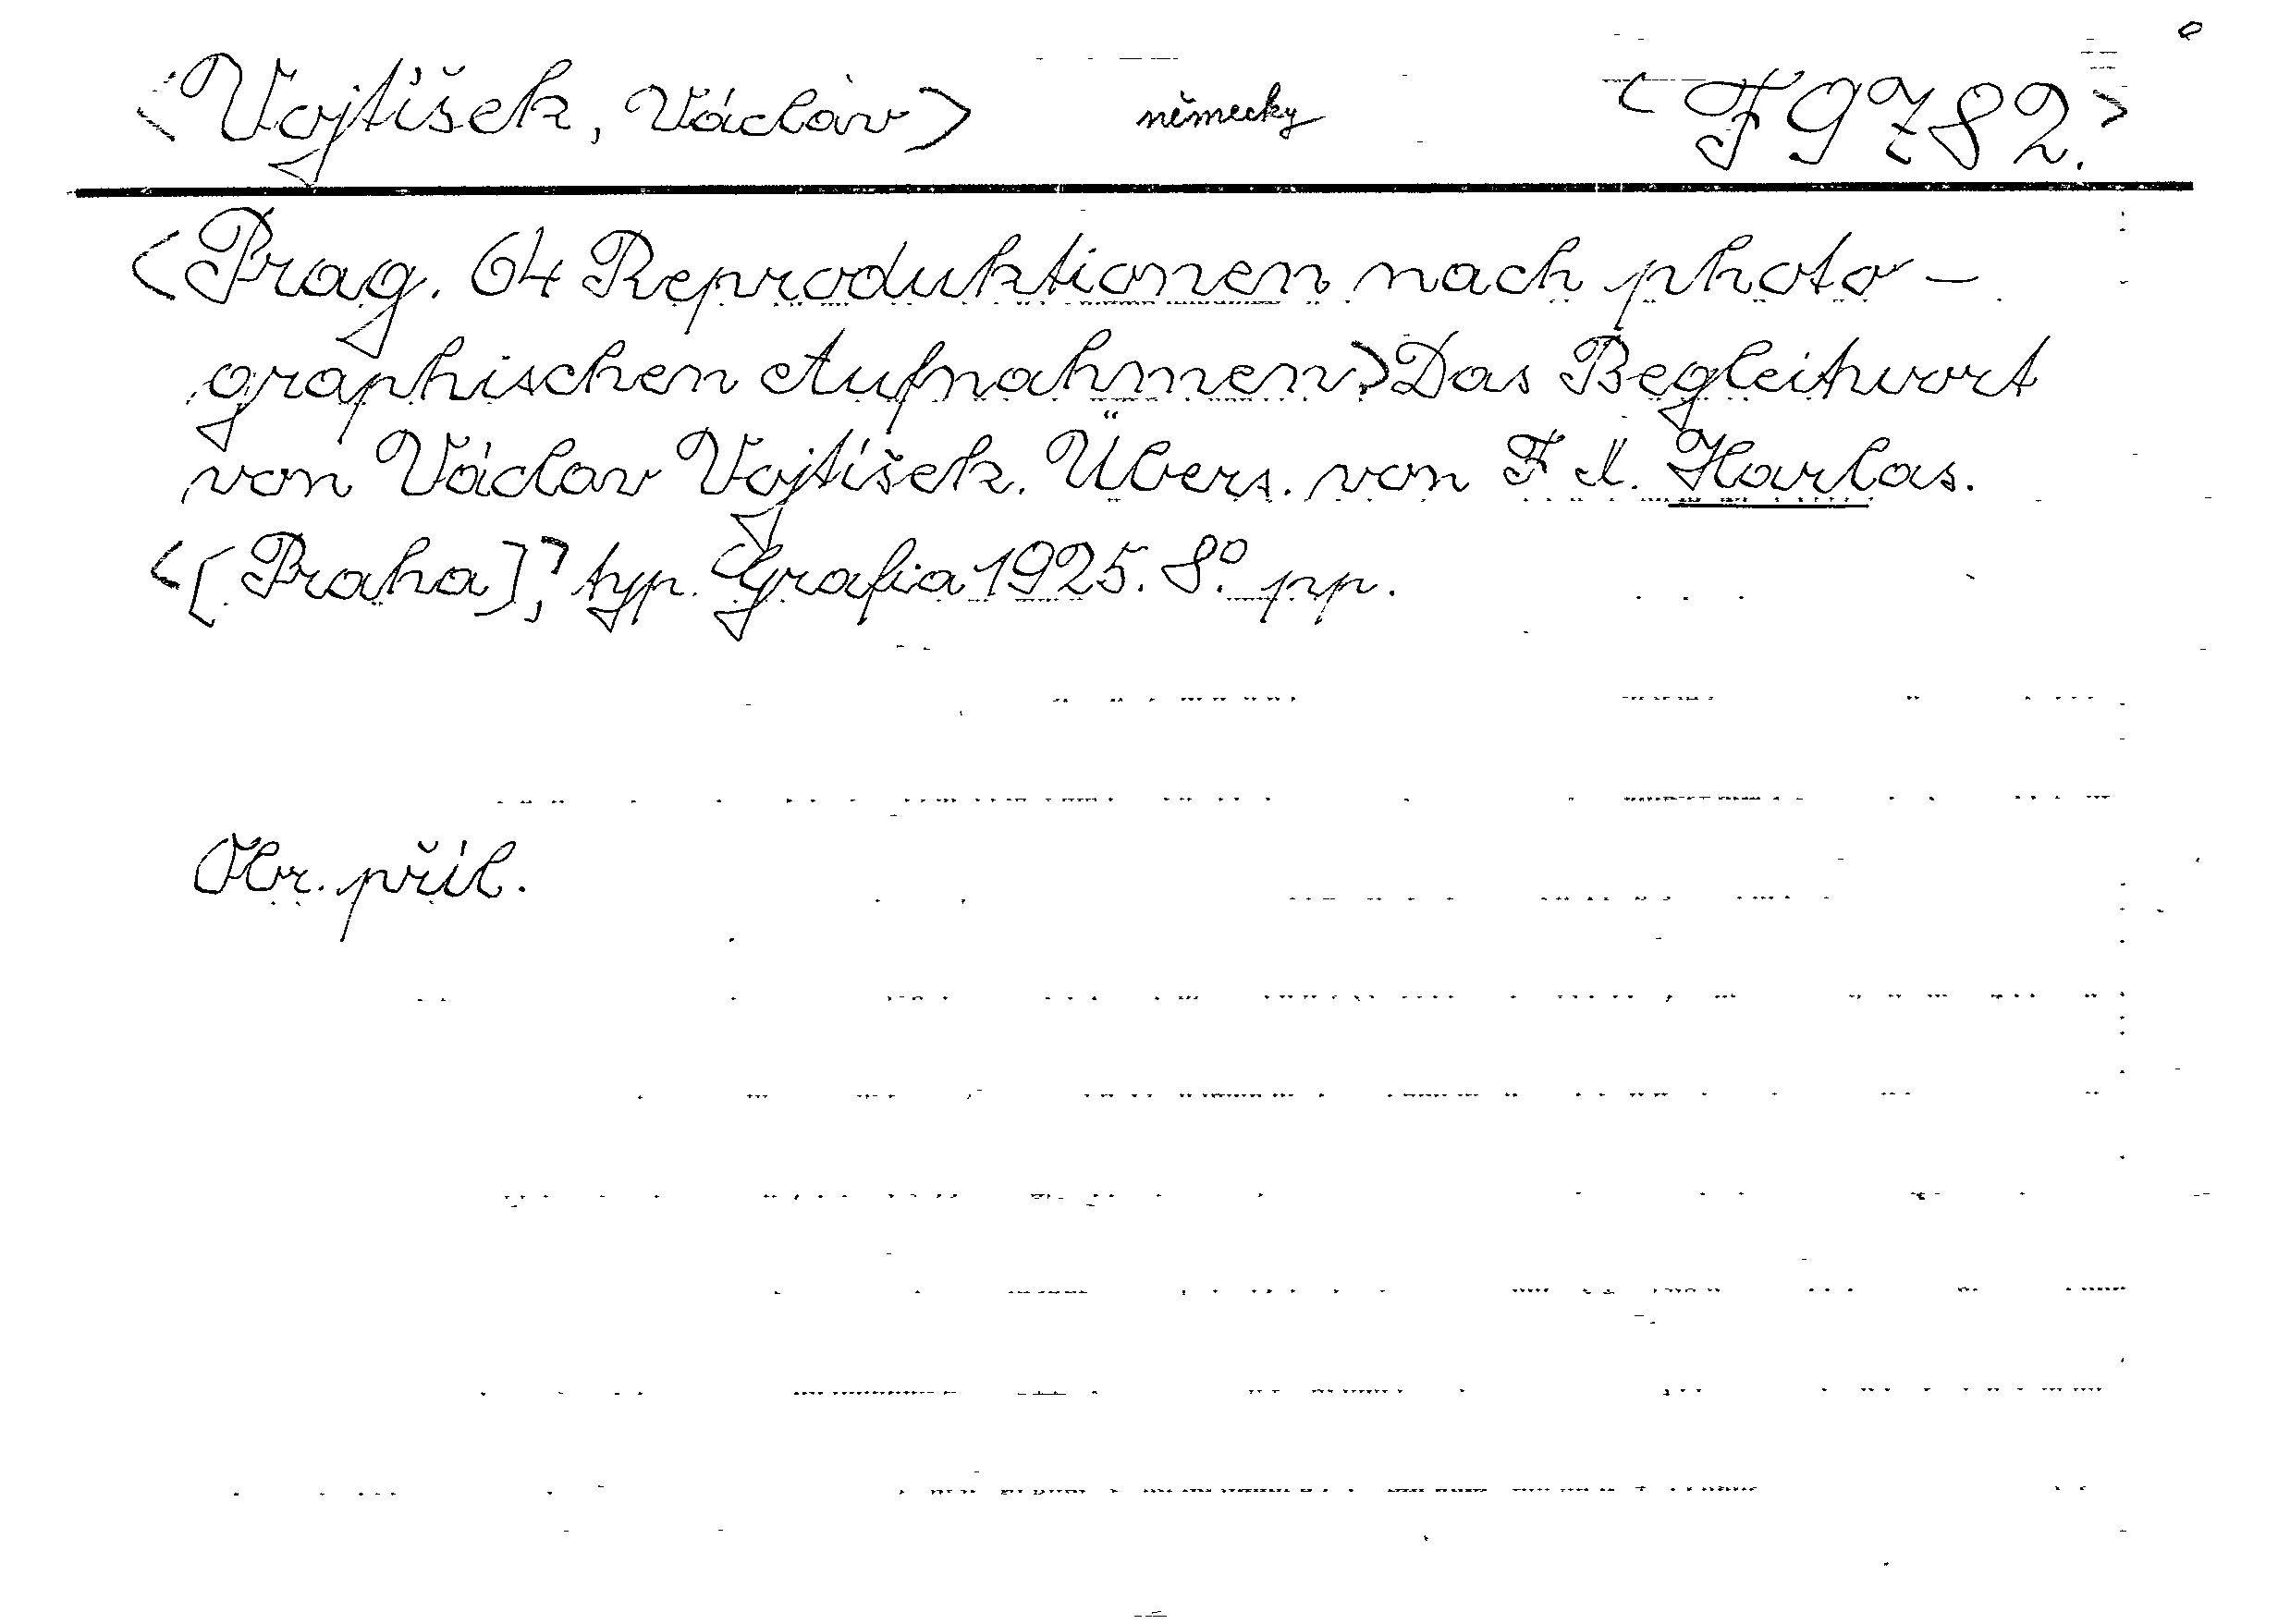 <Vojtíšek, Václav> německy <F 9782.>
<Prag. 64 Reproduktionen nach photo-
graphischen Aufnahmen> Das Begleitwort
von Václav Vojtíšek. Übers. von F. X. Harlas.
<[Praha],> typ. Grafia 1925. 8° pp.
Obr. příl.